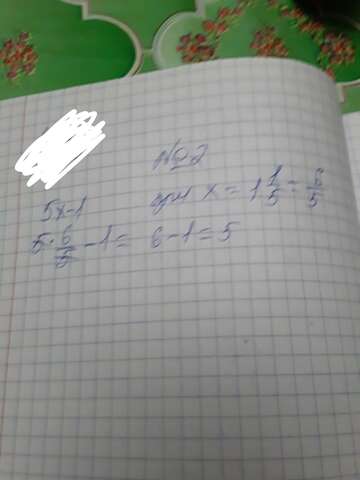 №2
5x-1 при x = 1 1/5 = 6/5
5 · 6/5 - 1 = 6 - 1 = 5